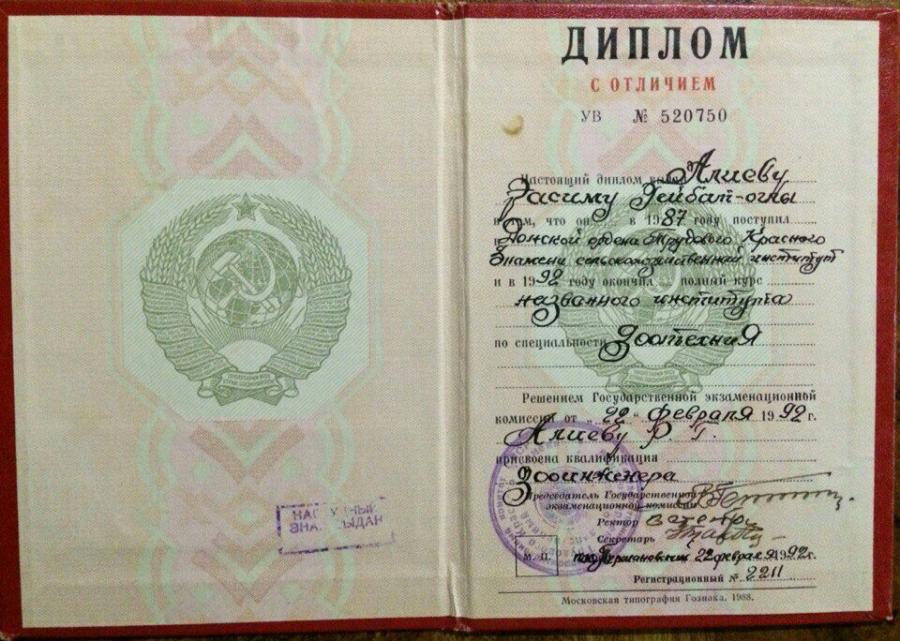 НАГРУДНЫЙ
ЗНАК ВЫДАН
ДИПЛОМ
С ОТЛИЧИЕМ
УВ № 520750
Настоящий диплом выдан Алиеву
Расиму Гейбат-оглы
в том, что он в 1987 году поступил
в Донской ордена Трудового Красного
Знамени сельскохозяйственный институт
и в 1992 году окончил полный курс
названного института
по специальности Зоотехния
Решением Государственной экзаменационной
комиссии от „22“ февраля 1992 г.
Алиеву Р. Г.
присвоена квалификация
Зооинженера
Председатель Государственной
экзаменационной комиссии
Ректор
Секретарь
М. П. 22 февраля 1992 г.
Регистрационный № 2211
Московская типография Гознака. 1988.